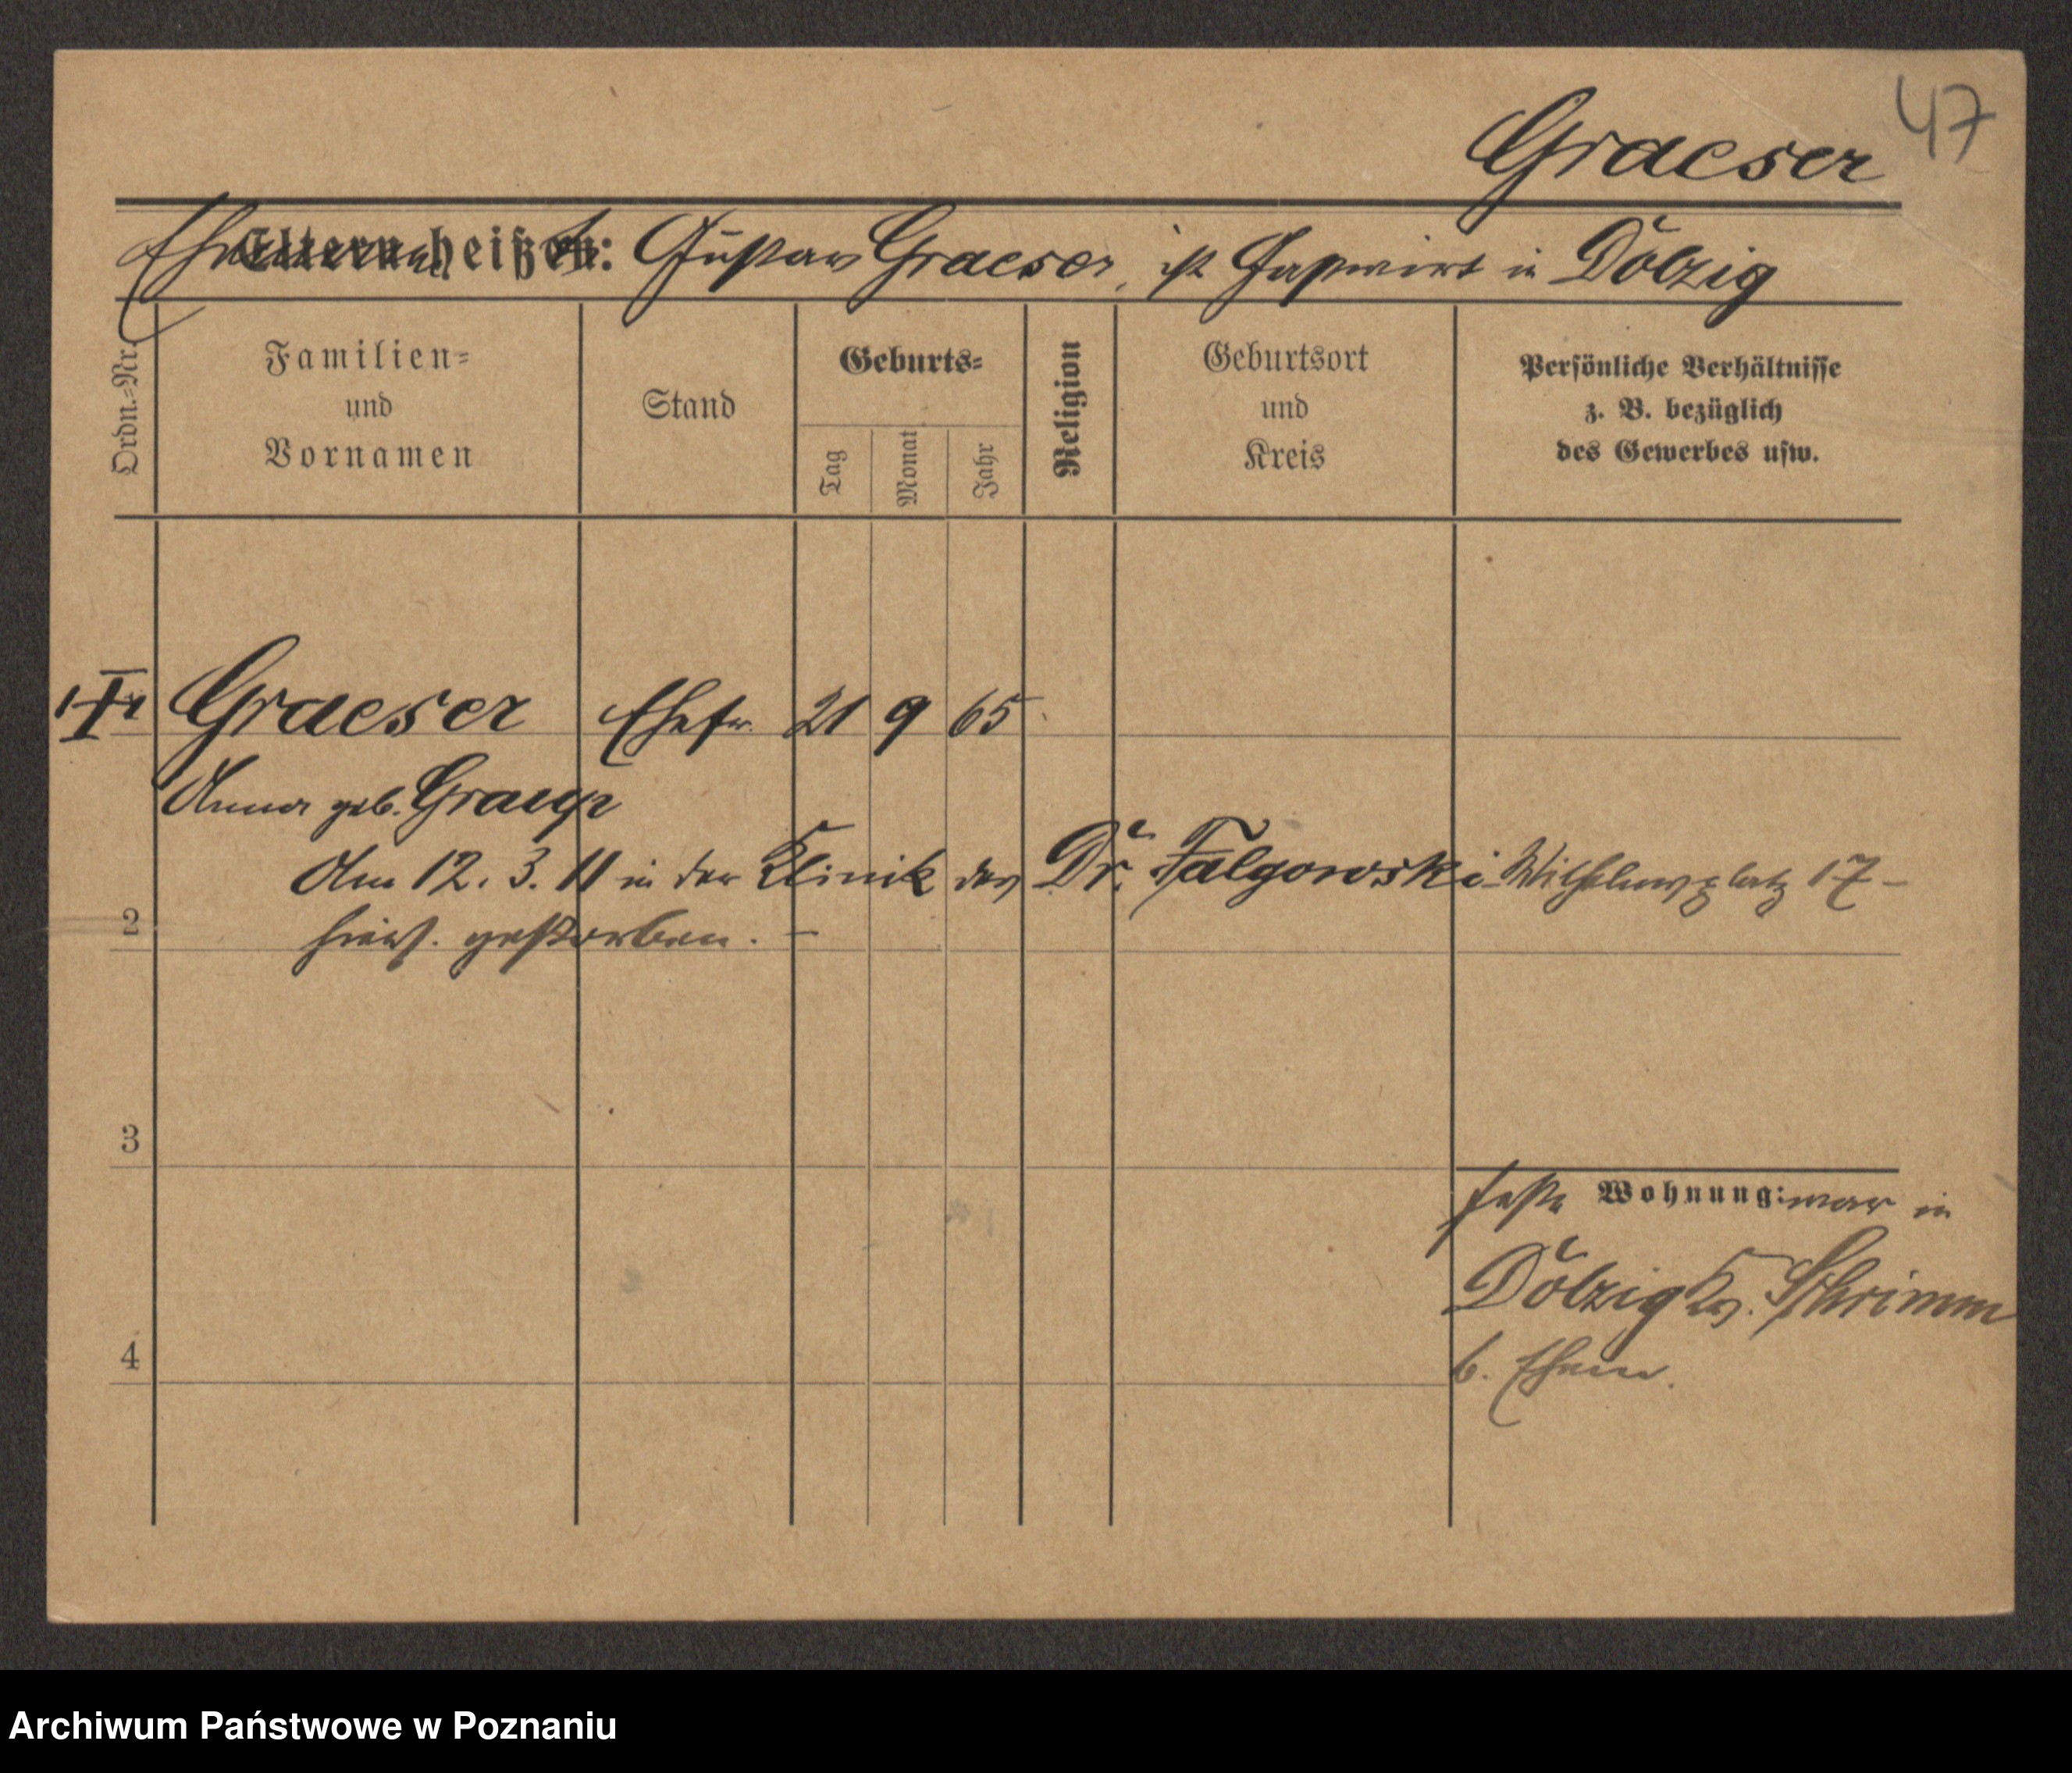 47
Graeser
Ehemann heißt: Gustav Graeser, ist Gastwirt in Dolzig
Ordn.-Nr.
Familien-
und
Vornamen
Stand
Geburts-
Tag
Monat
Jahr
Religion
Geburtsort
und
Kreis
Persönliche Verhältnisse
z. B. bezüglich
des Gewerbes usw.
Graeser Ehefr. 21 9 65
Anna geb. Graup
Am 12. 3. 11 in der Klinik des Dr. Falgowski Wilhelmsplatz 17 -
2
hiers. gestorben. -
3
feste Wohnung: war in
Dolzig Kr. Schrimm
4
b. Ehem.
Archiwum Państwowe w Poznaniu